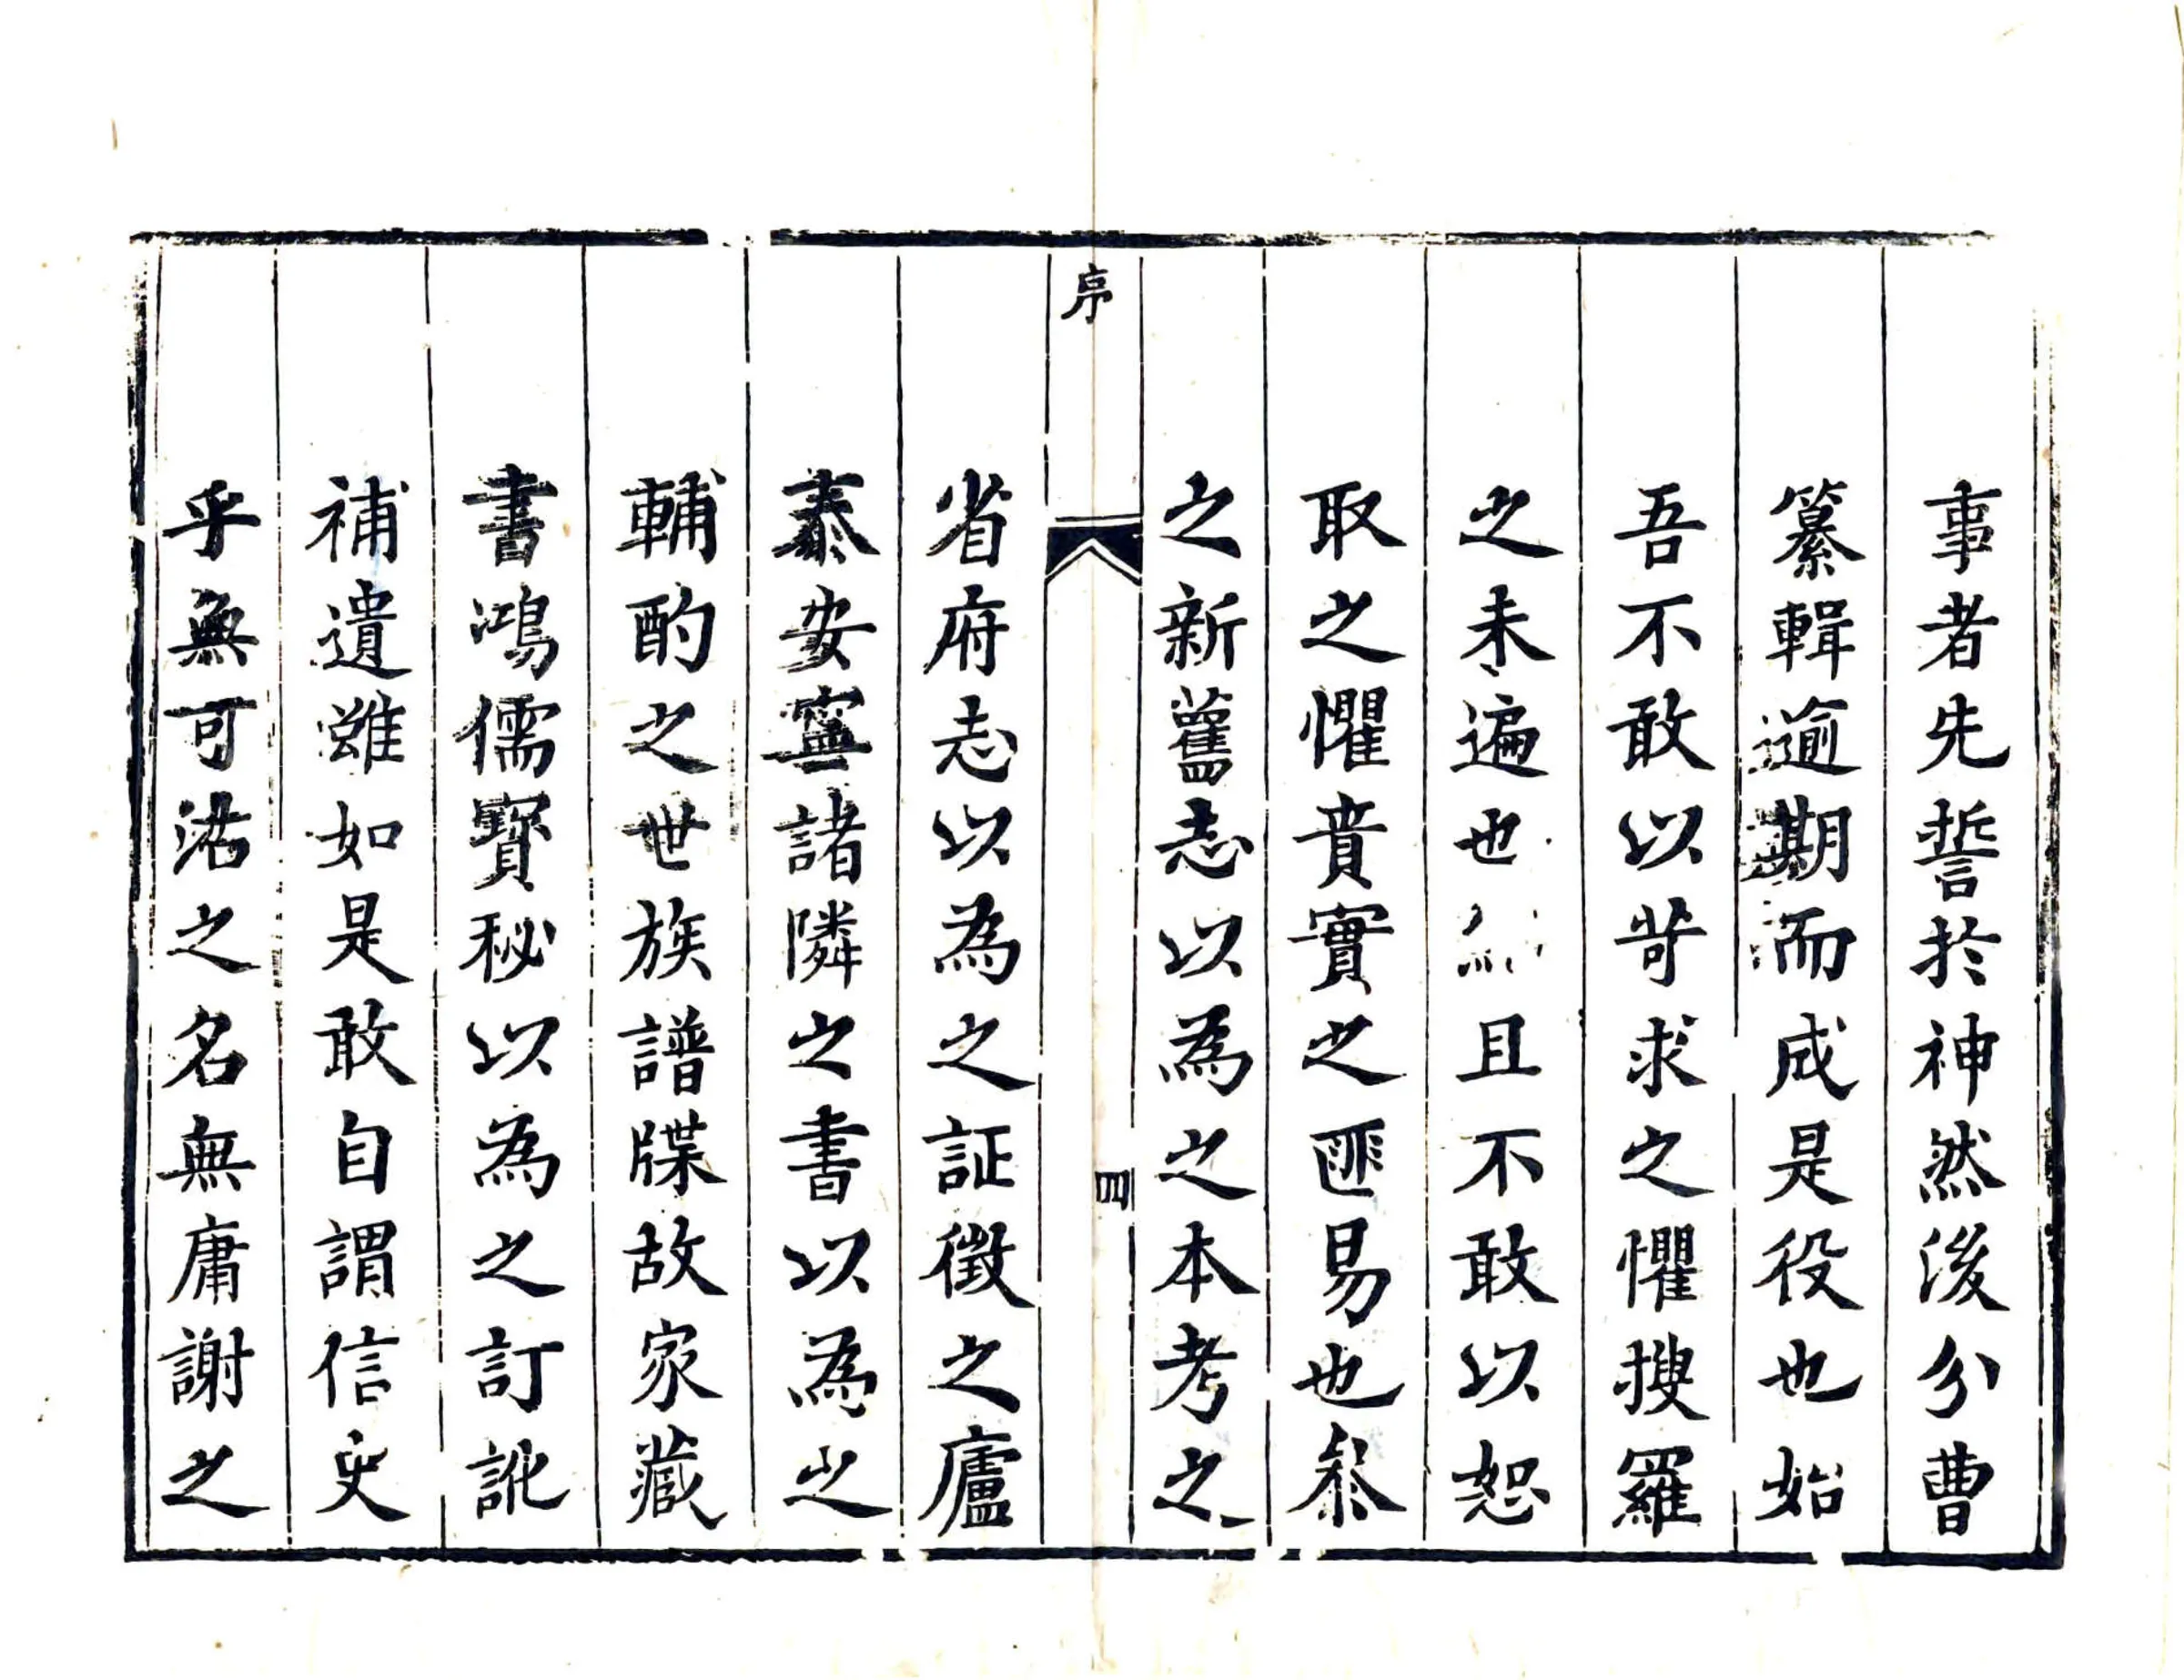 事者先誓於神然後分曹
纂輯逾期而成是役也始
吾不敢以苛求之懼搜羅
之未遍也且不敢以恕
取之懼賁實之匪易也叅
之新舊志以為之本考之
序
四
省府志以為之証徵之廬
泰安寧諸隣之書以為之
輔酌之世族譜牒故家藏
書鴻儒寳秘以為之訂訛
補遺雖如是敢自謂信史
乎無可沽之名無庸謝之